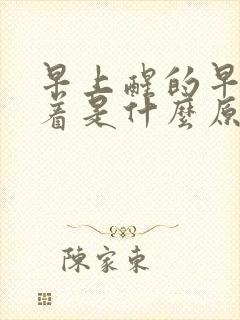 早上醒的早
着是什麼原
陳家東